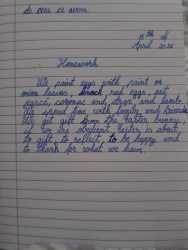 15th of
April 2020
Homework
We paint eggs with paint or
onion leaves, knock red eggs, eat
and, and lamb.
We spend time with family and friends.
We get gift from the Easter bunny
if we are obedient. Easter is about
to gift, to reflect, to be happy and
to thank for what we have.